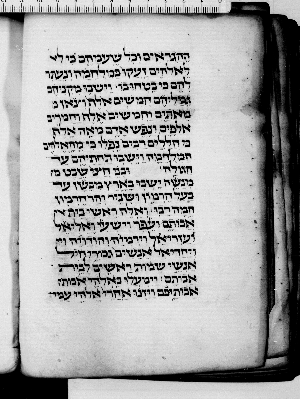 ההגריאים וכל שעמהם כי לא
לאלהים זעקו במלחמה ונעתר
להם כי בטחו בו׃ וישבו מקניהם
גמליהם חמשים אלף וצאן מ
מאתים וחמשים אלף וחמורים
אלפים ונפש אדם מאה אלף׃
כי חללים רבים נפלו כי מהאלהים
המלחמה וישבו תחתיהם עד
הגולה׃ ובני חצי שבט מ
מנשה ישבו בארץ מבשן עד
בעל חרמון ושניר והר חרמון
המה רבו׃ ואלה ראשי בית א
אבותם ועפר וישעי ואליאל
ועזריאל וירמיה והודויה וי
ויחדיאל אנשים גבורי חיל
אנשי שמות ראשים לבית
אבותם׃ וימעלו באלהי אבותי
אבותיהם ויזנו אחרי אלהי עמי